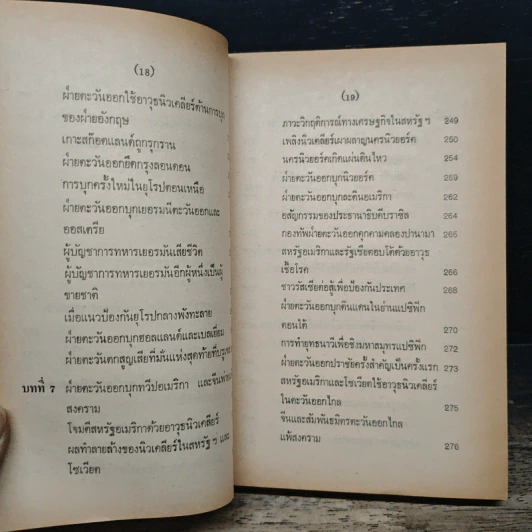 (18)
ฝ่ายตะวันออกใช้อาวุธนิวเคลียร์ต้านการบุก
ของฝ่ายอังกฤษ
เกาะสก๊อตแลนด์ถูกรุกราน
ฝ่ายตะวันออกยึดกรุงลอนดอน
การบุกครั้งใหม่ในยุโรปตอนเหนือ
ฝ่ายตะวันออกบุกเยอรมนีตะวันออกและ
ออสเตรีย
ผู้บัญชาการทหารเยอรมันเสียชีวิต
ผู้บัญชาการทหารเยอรมันอีกผู้หนึ่งเป็นผู้
ขายชาติ
เมื่อแนวป้องกันยุโรปกลางพังทะลาย
ฝ่ายตะวันออกบุกฮอลแลนด์และเบลเยี่ยม
ฝ่ายตะวันตกสูญเสียที่มั่นแห่งสุดท้ายที่
บทที่ 7 ฝ่ายตะวันออกบุกทวีปอเมริกา และจีนพ่าย
สงคราม
โจมตีสหรัฐอเมริกาด้วยอาวุธนิวเคลียร์
ผลทำลายล้างของนิวเคลียร์ในสหรัฐ ฯ และ
โซเวียต
(19)
ภาวะวิกฤติการณ์ทางเศรษฐกิจในสหรัฐ ฯ 249
เพลิงนิวเคลียร์เผาผลาญนครนิวยอร์ค 250
นครนิวยอร์คเกิดแผ่นดินไหว 254
ฝ่ายตะวันออกบุกนิวยอร์ค 260
ฝ่ายตะวันออกบุกละตินอเมริกา 262
อสัญกรรมของประธานาธิบดีบราซิล 264
กองทัพฝ่ายตะวันออกคุกคามคลองปานามา 265
สหรัฐอเมริกาและรัฐเซียตอบโต้ด้วยอาวุธ
เชื้อโรค 266
ชาวรัสเซียต่อสู้เพื่อป้องกันประเทศ 268
ฝ่ายตะวันออกบุกดินแดนในย่านแปซิฟิก
ตอนใต้ 270
การทำยุทธนาวีเพื่อชิงมหาสมุทรแปซิฟิก 272
ฝ่ายตะวันออกปราชัยครั้งสำคัญเป็นครั้งแรก 273
สหรัฐอเมริกาและโซเวียตใช้อาวุธนิวเคลียร์
ในตะวันออกไกล 275
จีนและสัมพันธมิตรตะวันออกไกล
แพ้สงคราม 276